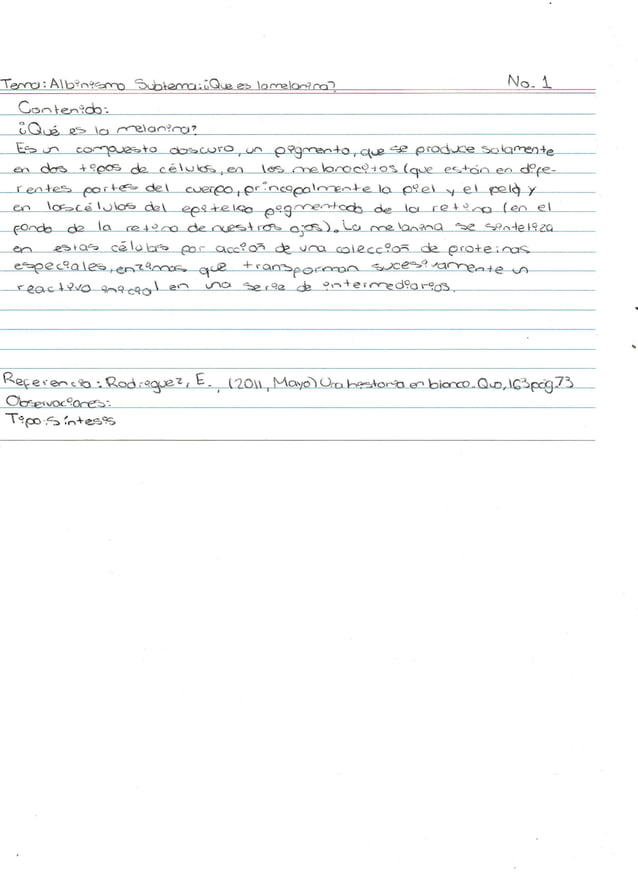 Tema: Albinismo Subtema: ¿Que es la melanina? No. 1
Contenido:
¿Qué es la melanina?
Es un compuesto obscuro, un pigmento, que se produce solamente
en dos tipos de células, en los melanocitos (que están en dife-
rentes partes del cuerpo, principalmente la piel y el pelo) y
en las células del epitelio pigmentado de la retina (en el
fondo de la retina de nuestros ojos). La melanina se sintetiza
en estas células por acción de una colección de proteinas
especiales, enzimas que transforman sucesivamente un
reactivo inicial en una serie de intermediarios.
Referencia: Rodriguez, E., (2011, Mayo) Una historia en blanco. Quo, 163 pág 73
Observaciones:
Tipo: Síntesis